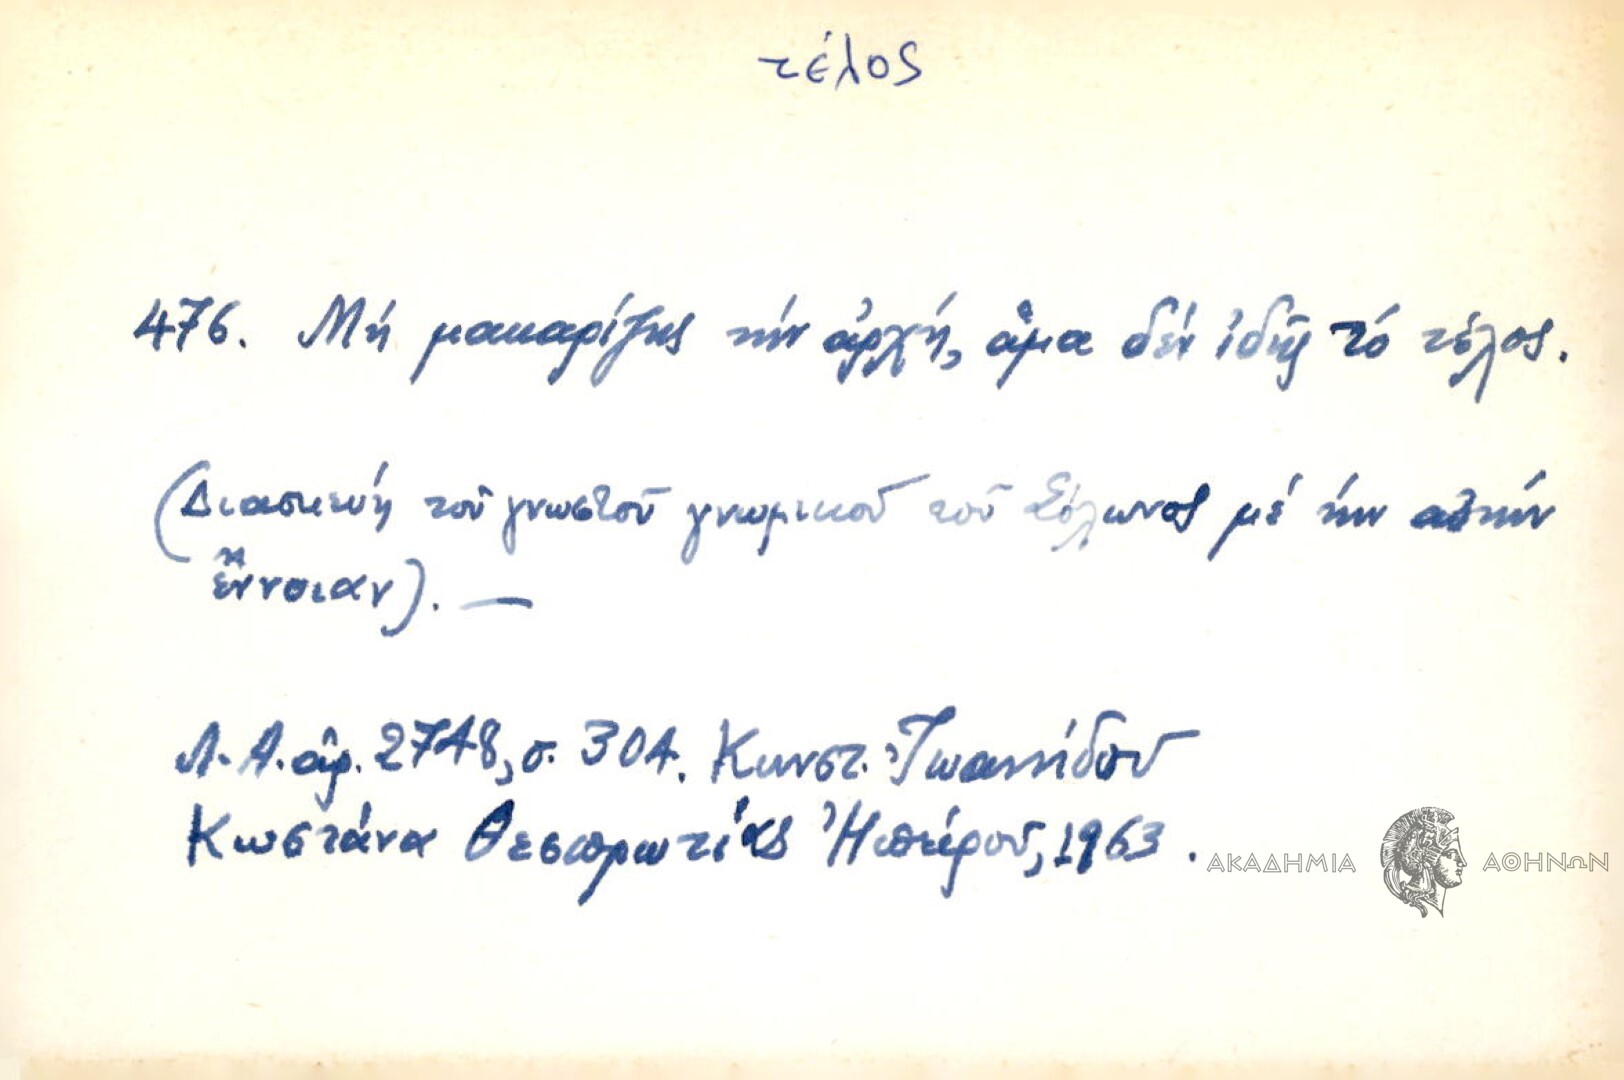 τέλος
476. Μή μακαρίζης τήν ἀρχή, ἅμα δέν ἰδῆς τό τέλος.
(Διασκευή τοῦ γνωστοῦ γνωμικοῦ τοῦ Σόλωνος μέ τήν αὐτήν
ἔννοιαν). —
Λ.Α. ἀρ. 2748, σ. 304. Κωνστ. Ἰωαννίδου
Κωστάνα Θεσπρωτίας Ἠπείρου, 1963.
ΑΚΑΔΗΜΙΑ ΑΘΗΝΩΝ